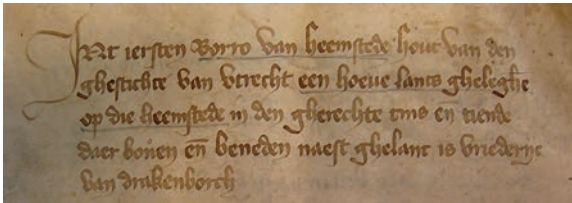 Int iersten Borro van heemstede hout van den
ghestichte van vtrecht een hoeue lants gheleghe
op die heemstede in den gherechte tins en tiende
daer bouen en beneden naest ghelant is vrederic
van drakenborch